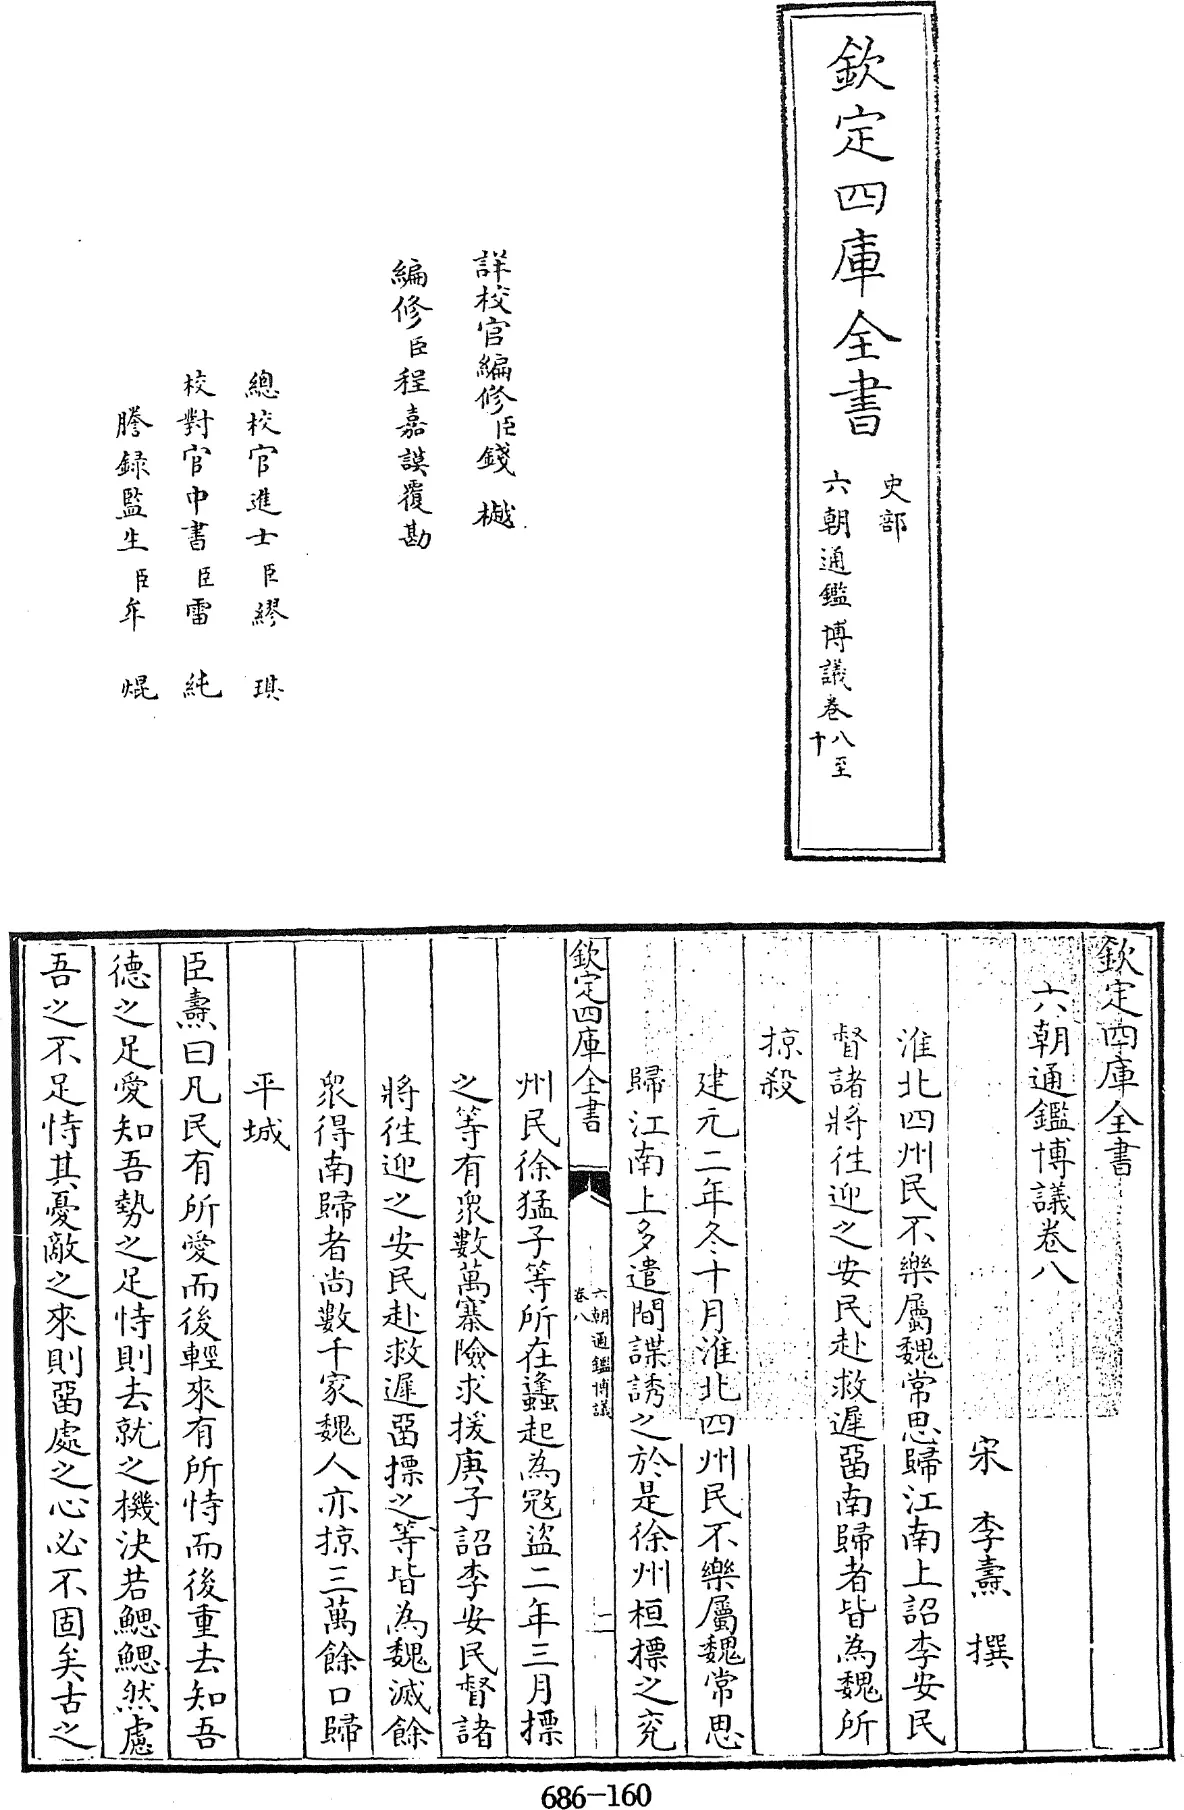 欽定四庫全書
史部
六朝通鑑博議卷八至十
詳校官編修臣錢樾
編修臣程嘉謨覆勘
總校官進士臣繆琪
校對官中書臣雷純
謄録監生臣牟焜
欽定四庫全書
六朝通鑑博議卷八
宋 李燾 撰
淮北四州民不樂屬魏常思歸江南上詔李安民
督諸將徃迎之安民赴救遲畱南歸者皆為魏所
掠殺
建元二年冬十月淮北四州民不樂屬魏常思
歸江南上多遣間諜誘之於是徐州桓摽之兖
欽定四庫全書
六朝通鑑博議
卷八
二
州民徐猛子等所在蠭起為宼盜二年三月摽
之等有衆數萬寨險求援庚子詔李安民督諸
將徃迎之安民赴救遲畱摽之等皆為魏滅餘
衆得南歸者尚數千家魏人亦掠三萬餘口歸
平城
臣燾曰凡民有所愛而後輕來有所恃而後重去知吾
德之足愛知吾勢之足恃則去就之機決若鰓鰓然慮
吾之不足恃其憂敵之來則畱處之心必不固矣古之
686-160